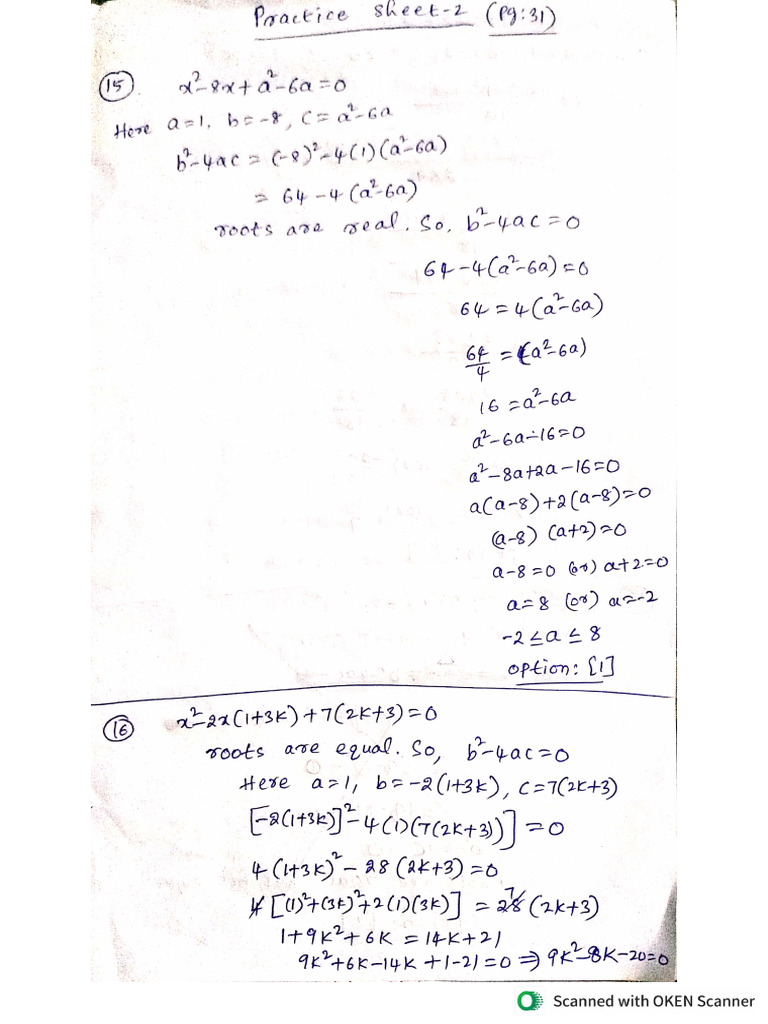 Practice Sheet-2 (Pg:31)
(15) x²-8x+a²-6a=0
Here a=1, b=-8, c=a²-6a
b²-4ac = (-8)²-4(1)(a²-6a)
= 64-4(a²-6a)
roots are real. So, b²-4ac=0
64-4(a²-6a)=0
64=4(a²-6a)
64/4 = (a²-6a)
16=a²-6a
a²-6a-16=0
a²-8a+2a-16=0
a(a-8)+2(a-8)=0
(a-8) (a+2)=0
a-8=0 (or) a+2=0
a=8 (or) a=-2
-2≤a≤8
Option: [1]
(16) x²-2x(1+3k)+7(2k+3)=0
roots are equal. So, b²-4ac=0
Here a=1, b=-2(1+3k), c=7(2k+3)
[-2(1+3k)]²-4(1)(7(2k+3))]=0
4(1+3k)²-28(2k+3)=0
4[(1)²+(3k)²+2(1)(3k)] = 28 7 (2k+3)
1+9k²+6k=14k+21
9k²+6k-14k+1-21=0 ⇒ 9k²-8k-20=0
Scanned with OKEN Scanner